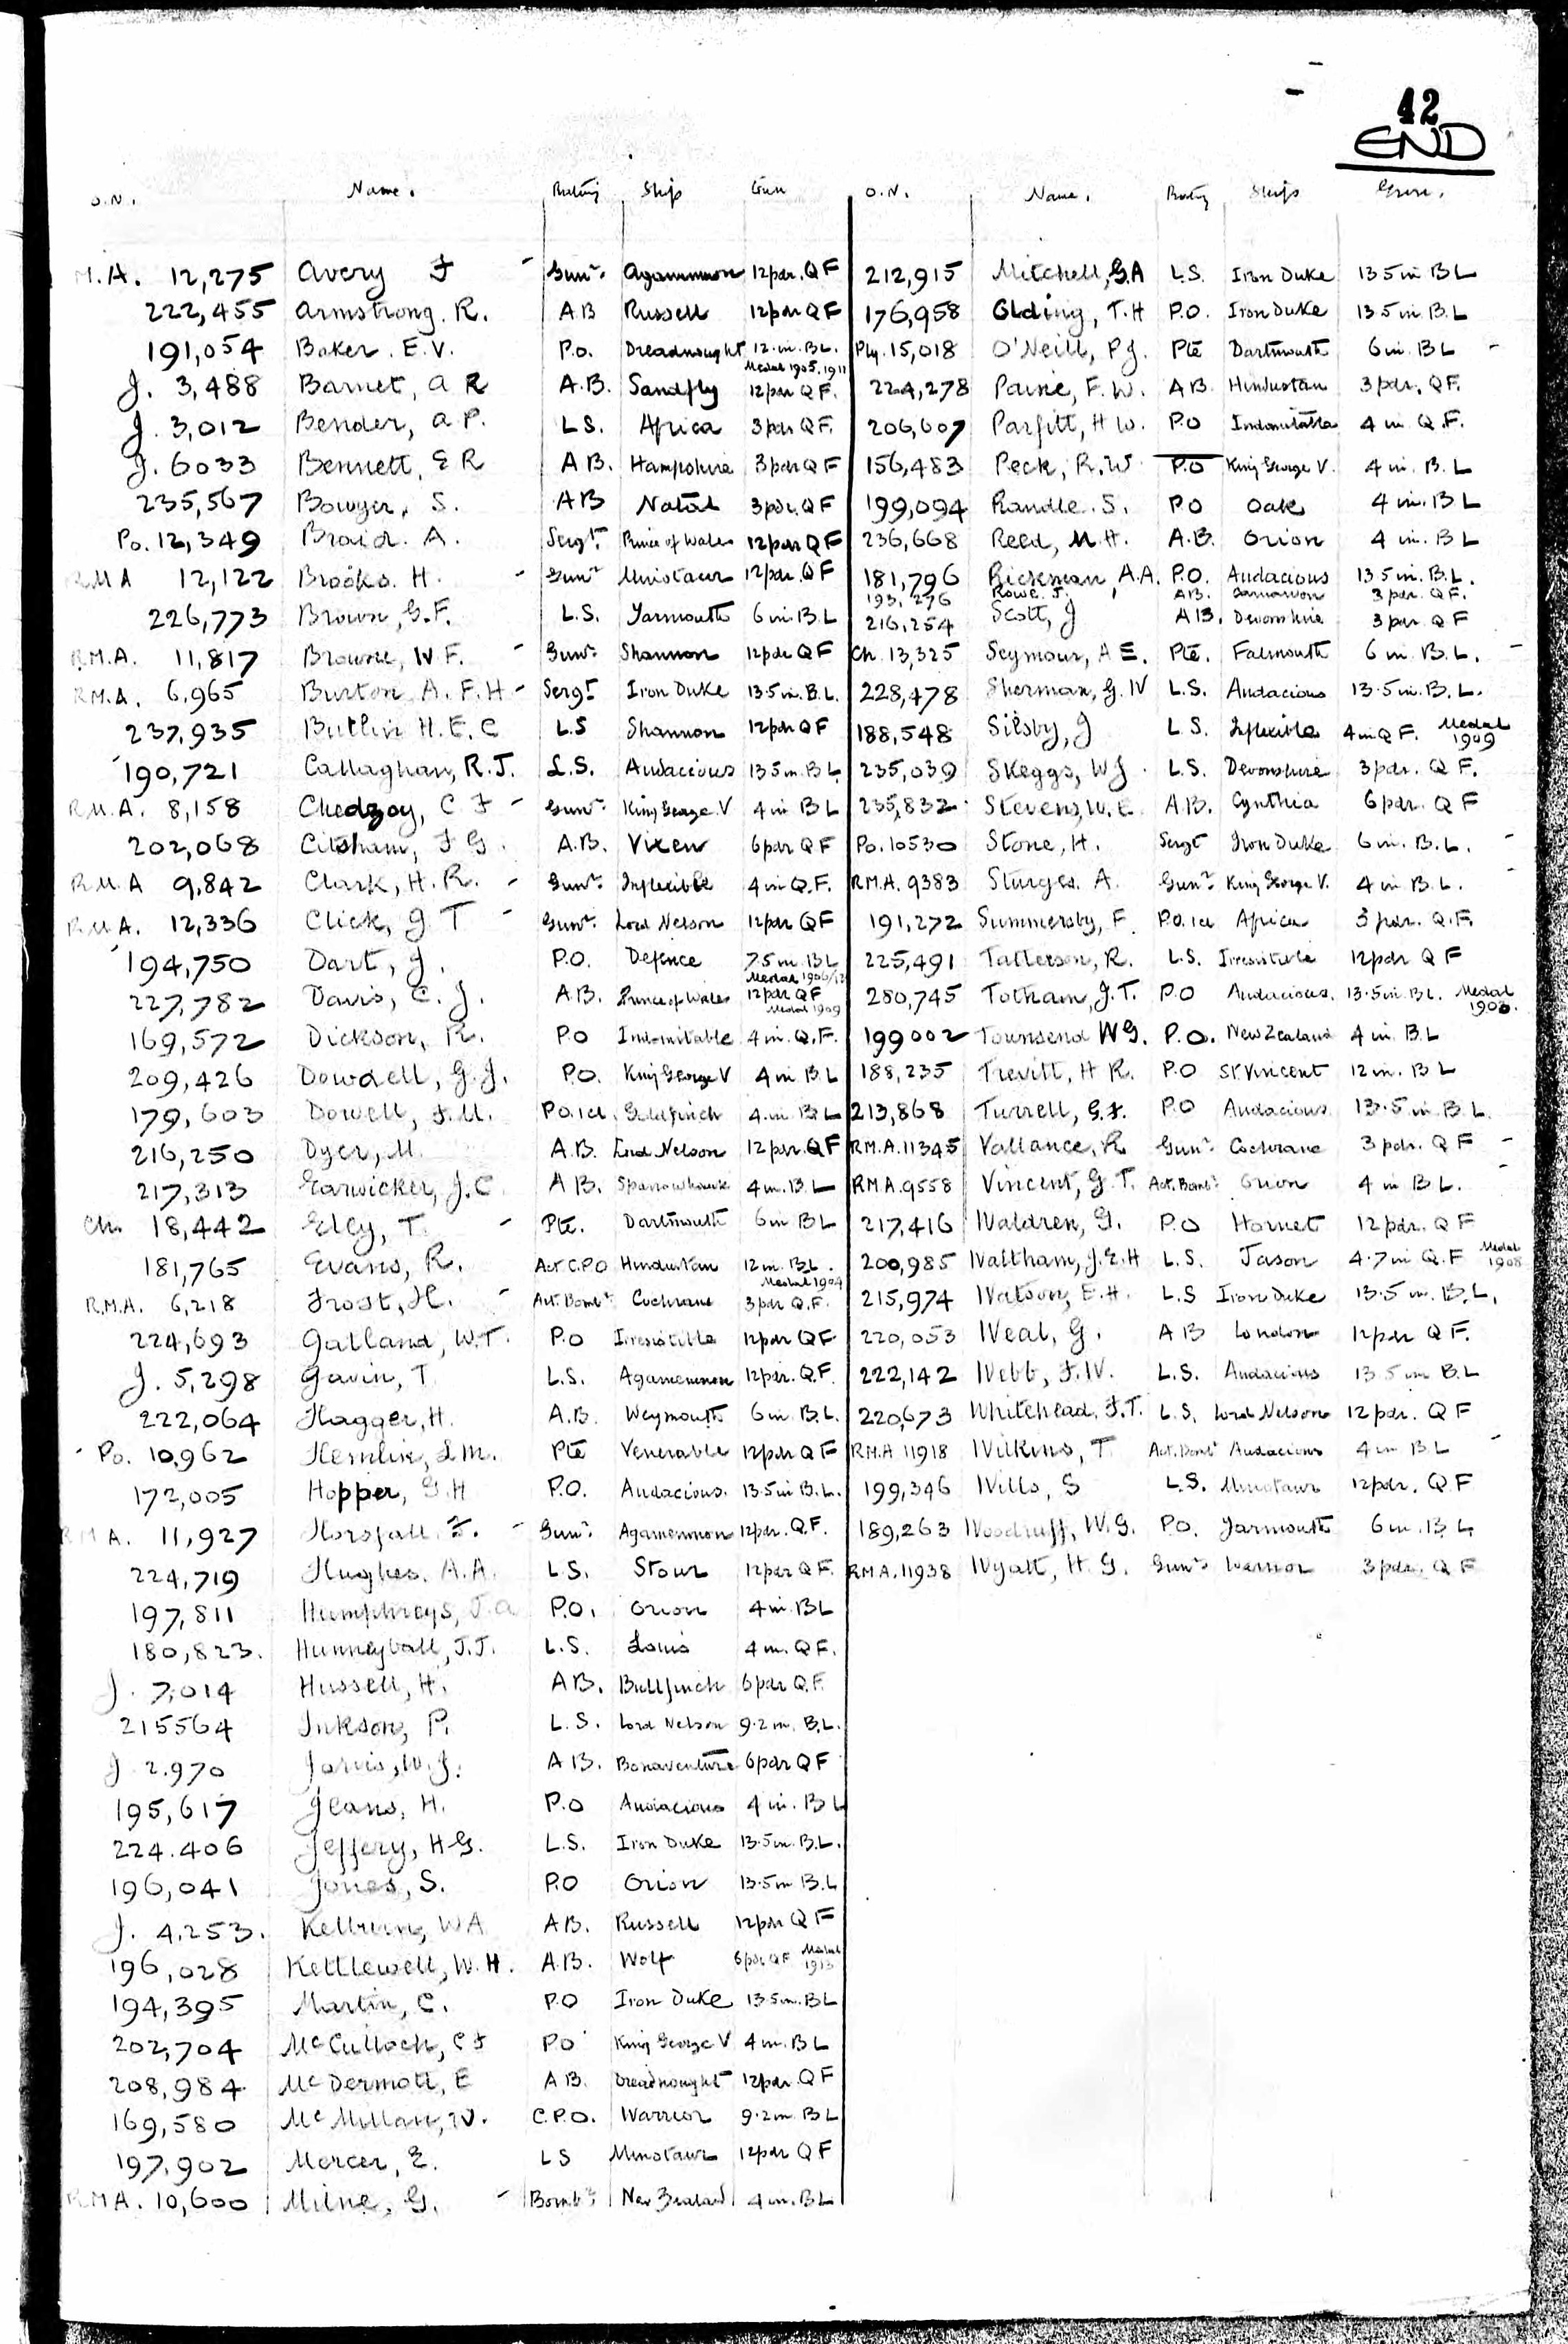 42
END
O.N. Name. Rating Ship Gun
M.A. 12,275 Avery F - Gunr. Agamemnon 12pdr. QF
222,455 Armstrong. R. A.B Russell 12pdr QF
191,054 Baker. E.V. P.O. Dreadnought 12.in. BL. Medal 1905. 1911
J. 3,488 Barnet, A R A.B. Sandfly 12pdr QF.
J. 3,012 Bender, A P. L S. Africa 3pdr QF.
J. 6033 Bennett, E R A B. Hampshire 3pdr QF
235,567 Bowyer, S. AB Natal 3pdr. QF
Po. 12,349 Braid. A. Sergt. Prince of Wales 12pdr QF
RMA 12,122 Brooks. H. - Gunr Minotaur 12pdr. QF
226,773 Brown, G.F. L.S. Yarmouth 6 in. B.L
R.M.A. 11,817 Browne, W F. - Gunr. Shannon 12pdr QF
R.M.A. 6,965 Burton A. F. H - Sergt Iron Duke 13.5 in. B.L.
237,935 Butlin H. E. C L.S Shannon 12pdr QF
190,721 Callaghan, R.J. L.S. Audacious 13 5 in. B L
R.M.A. 8,158 Chedzoy, C F - Gunr. King George V 4 in BL
202,068 Citsham, F G. A.B. Vixen 6pdr QF
R.M.A 9,842 Clark, H. R. - Gunr. Inflexible 4 in Q.F.
R.M.A. 12,336 Click, G T - Gunr. Lord Nelson 12pdr QF
194,750 Dart, J. P.O. Defence 7.5 in. BL Medal
227,782 Davis, C. J. A.B. Prince of Wales 12pdr QF Medal 1909
169,572 Dickson, R. P.O Indomitable 4 in. Q.F.
209,426 Dowdell, G.J. P.O. King George V 4 in B L
179,603 Dowell, F.M. P.O. 1cl Goldfinch 4.in B L
216,250 Dyer, M. A.B. Lord Nelson 12 pdr. QF
217,313 Earwicker, J.C. A B. Sparrowhawk 4 in. B L
Ch. 18,442 Eley, T. - Pte. Dartmouth 6 in BL
181,765 Evans, R. Act. C.P.O Hindustan 12 in. BL. Medal 1904
R.M.A. 6,218 Frost, H. - Act. Bombr Cochrane 3pdr Q.F.
224,693 Galland, W.T. P.O Irresistible 12pdr QF
J. 5,298 Gavin, T. L.S. Agamemnon 12pdr. Q.F.
222,064 Hagger, H. A.B. Weymouth 6 in. B.L.
- Po. 10,962 Hemlin, L M. Pte Venerable 12pdr QF
172,005 Hopper, G.H P.O. Audacious. 13.5 in B.L.
RMA. 11,927 Horsfall. F. - Gunr. Agamemnon 12pdr. Q.F.
224,719 Hughes. A.A. L.S. Stour 12pdr QF.
197,811 Humphreys, J.A P.O. Orion 4 in. BL
180,823. Hunneyball, J.J. L.S. Louis 4 in. QF.
J. 7,014 Hussell, H. AB. Bullfinch 6pdr Q.F.
215564 Inkson, P. L.S. Lord Nelson 9.2 in. B.L.
J 2.970 Jarvis, W. J. A B. Bonaventure 6pdr QF
195,617 Jeans, H. P.O Audacious 4 in. B L
224.406 Jeffery, H.G. L.S. Iron Duke 13.5 in. B.L.
196,041 Jones, S. P.O Orion 13.5 in B.L
J. 4.253. WA AB. Russell 12pdr QF
196,028 Kettlewell, W.H. A.B. Wolf 6pdr QF Medal 1913
194,395 Martin, C. P.O Iron Duke 13.5 in. BL
202,704 McCulloch, C F P.O King George V 4 in. BL
208,984 McDermott, E A B. Dreadnought 12pdr. QF
169,580 McMillan, W. C.P.O. Warrior 9.2 in. BL
197,902 Mercer, E. LS Minotaur 12pdr QF
RMA. 10,600 Milne, G. - Bombr New Zealand 4 in. BL
O.N. Name. Rating Ships Guns.
212,915 Mitchell, G.A L.S. Iron Duke 13 5 in BL
176,958 Olding, T.H P.O. Iron Duke 13 5 in. B.L
Ply. 15,018 O'Neill, P J. Pte Dartmouth 6 in. BL -
224,278 Paine, F. W. A B. Hindustan 3 pdr. QF.
206,607 Parfitt, H W. P.O Indomitable 4 in Q.F.
156,483 Peck, R.W P.O King George V. 4 in. B.L
199,094 Randle. S. P.O Oak 4 in. BL
236,668 Reed, M.H. A.B. Orion 4 in. BL
181,796 Rickman, A.A. P.O. Audacious 13.5 in. B.L.
193,276 Rowe. J. AB. Carnarvon 3 pdr. QF.
216,254 Scott, J A B, Devonshire 3 pdr. QF
Ch. 13,325 Seymour, A E. Pte. Falmouth 6 in. B.L. -
228,478 Sherman, G. W L.S. Audacious 13.5 in. B.L.
188,548 Silsby, J L.S. Inflexible 4 in Q F. Medal 1909
235,039 Skeggs, W J. L.S. Devonshire 3pdr. QF.
235,832 Stevens, W. E. A.B. Cynthia 6pdr. QF
Po. 10530 Stone, H. Sergt Iron Duke 6 in. B.L. -
R.M.A. 9383 Sturges. A. Gunr King George V. 4 in B.L. -
191,272 Summersby, F P.O. 1cl Africa 3 pdr. Q.F.
225,491 Tatterson, R. L.S. Irresistible 12pdr QF
280,745 Totham, J.T. P.O Audacious. 13.5 in. BL. Medal
199002 Townsend W G. P.O. New Zealand 4 in B L
188,235 Trevitt, H R. P.O St. Vincent 12 in. BL
213,868 Turrell, G.F. P.O Audacious 13.5 in B.L.
R.M.A. 11345 Vallance, R Gunr. Cochrane 3 pdr. QF -
R.M.A. 9558 Vincent, G.T. Act. Bombr Orion 4 in BL. -
217,416 Waldren, G. P.O Hornet 12pdr. QF
200,985 Waltham, J.E.H L.S. Jason 4.7 in Q.F Medal 1908
215,974 Watson, E.H. L.S Iron Duke 13.5 in. B.L.
220,053 Weal, G. A B London 12pdr QF.
222,142 Webb, F. W. L.S. Audacious 13 5 in B.L
220,673 Whitehead, F.T. L.S. Lord Nelson 12 pdr. QF
R.M.A 11918 Wilkins, T Act. Bombr Audacious 4 in BL -
199,346 Wills, S L.S. Minotaur 12pdr. QF
189,263 Woodruff, W.G. P.O. Yarmouth 6 in. B L
R.M.A. 11938 Wyatt, H G. Gunr Warrior 3 pdr. QF